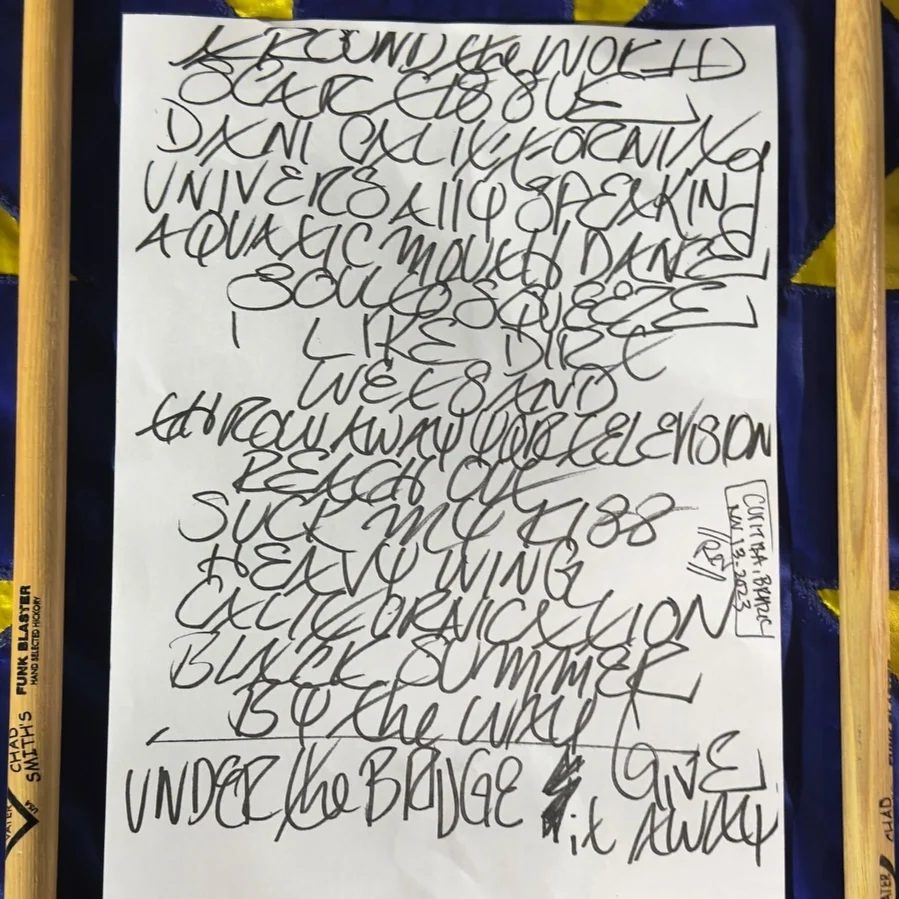 AROUND the WORLD
SCAR TISSUE
DANI CALIFORNIA
UNIVERSAllY SPEAKING
AQUATIC MOUTH DANCE
SOUL TO SQUEEZE
I LIKE DIRT
WET SAND
tHROW AWAY YOUR TELEVISION
REACH OUT
SUCK MY KISS
HEAVY WING
CALIFORNICATION
BLACK SUMMER
BY the WAY
UNDER the BRIDGE
GIVE
it AWAY
CURITIBA, BRAZIL
NOV 13-2023
FUNK BLASTER
HAND SELECTED HICKORY
CHAD
SMITH'S
VATER
USA
CHAD
VATER